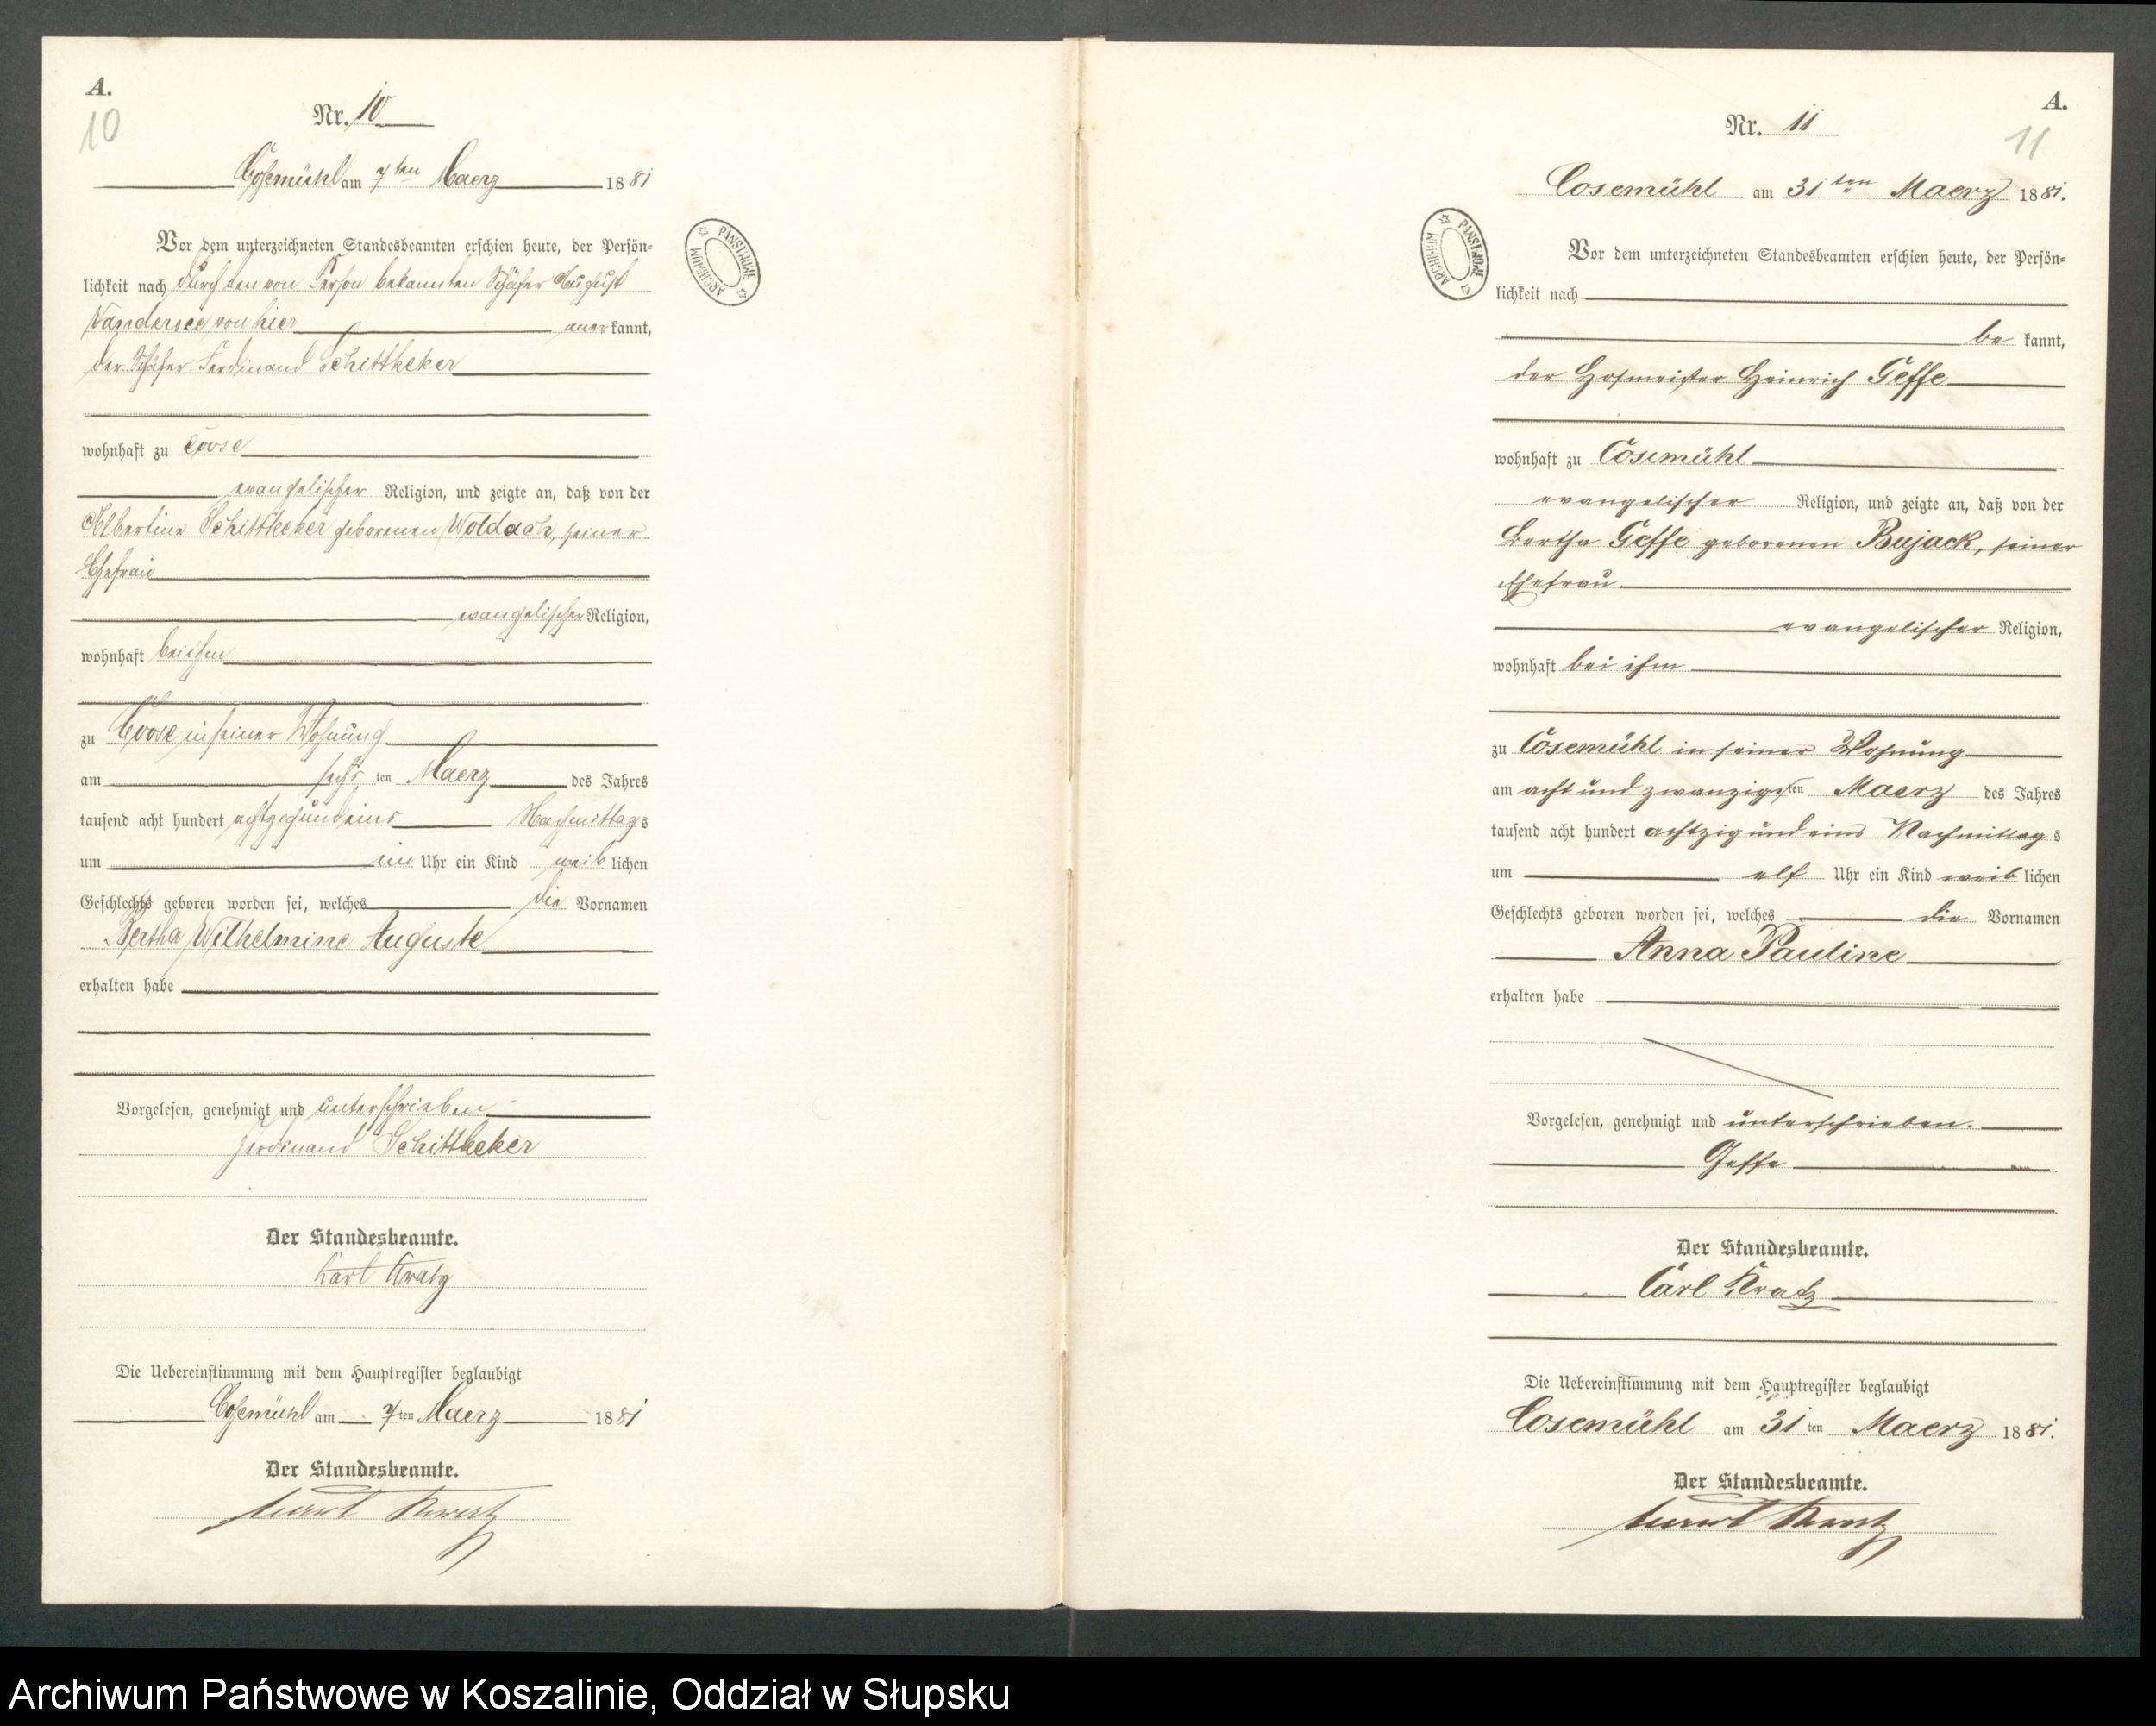 A.
10
Nr. 10
Cosemühl am 7ten Maerz 1881
Vor dem unterzeichneten Standesbeamten erschien heute, der Persön-
lichkeit nach durch den von Person bekannten Schäfer August
Wandersee von hier anerkannt,
der Schäfer Ferdinand Schittheker
wohnhaft zu Coose
evangelischer Religion, und zeigte an, daß von der
Albertine Schittheker geborenen Woldach, seiner
Ehefrau
evangelischer Religion,
wohnhaft bei ihm
zu Coose in seiner Wohnung
am sechs ten Maerz des Jahres
tausend acht hundert achtzig und eins Nachmittags
um Uhr ein Kind weiblichen
Geschlechts geboren worden sei, welches die Vornamen
Bertha Wilhelmine Auguste
erhalten habe
Vorgelesen, genehmigt und unterschrieben
Ferdinand Schittheker
Der Standesbeamte.
Karl Kratz
Die Uebereinstimmung mit dem Hauptregister beglaubigt
Cosemühl am 7ten Maerz 1881
Der Standesbeamte.
Kratz
ARCHIWUM PAŃSTWOWE
A.
11
Nr. 11
Cosemühl am 31ten Maerz 1881.
ARCHIWUM PAŃSTWOWE
Vor dem unterzeichneten Standesbeamten erschien heute, der Persön-
lichkeit nach
be kannt,
der Hofmeister Heinrich Geffe
wohnhaft zu Cosemühl
evangelischer Religion, und zeigte an, daß von der
Bertha Geffe geborenen Bujack, seiner
Ehefrau
evangelischer Religion,
wohnhaft bei ihm
zu Cosemühl in seiner Wohnung
am acht und zwanzigsten Maerz des Jahres
tausend acht hundert achtzig und eins Nachmittags
um elf Uhr ein Kind weiblichen
Geschlechts geboren worden sei, welches die Vornamen
Anna Pauline
erhalten habe
Vorgelesen, genehmigt und unterschrieben.
Geffe
Der Standesbeamte.
Carl Kratz
Die Uebereinstimmung mit dem Hauptregister beglaubigt
Cosemühl am 31 ten Maerz 1881.
Der Standesbeamte.
Kratz
Archiwum Państwowe w Koszalinie, Oddział w Słupsku